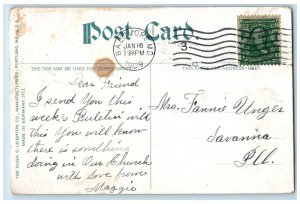 Post Card.
BALTIMORE, MD.
JAN 16
1:30 PM
1909
3
THIS SIDE MAY BE USED FOR CORRESPONDENCE
THE HUGH C. LEIGHTON CO., MANUFACTURERS, PORTLAND, ME., U.S.A.
MADE IN GERMANY
Dear Friend
I send you this
week's Buletin with
this You will know
there is something
doing in Our Church
with love from
Maggie
Mrs. Fannie Unger
Savanna
Ill.